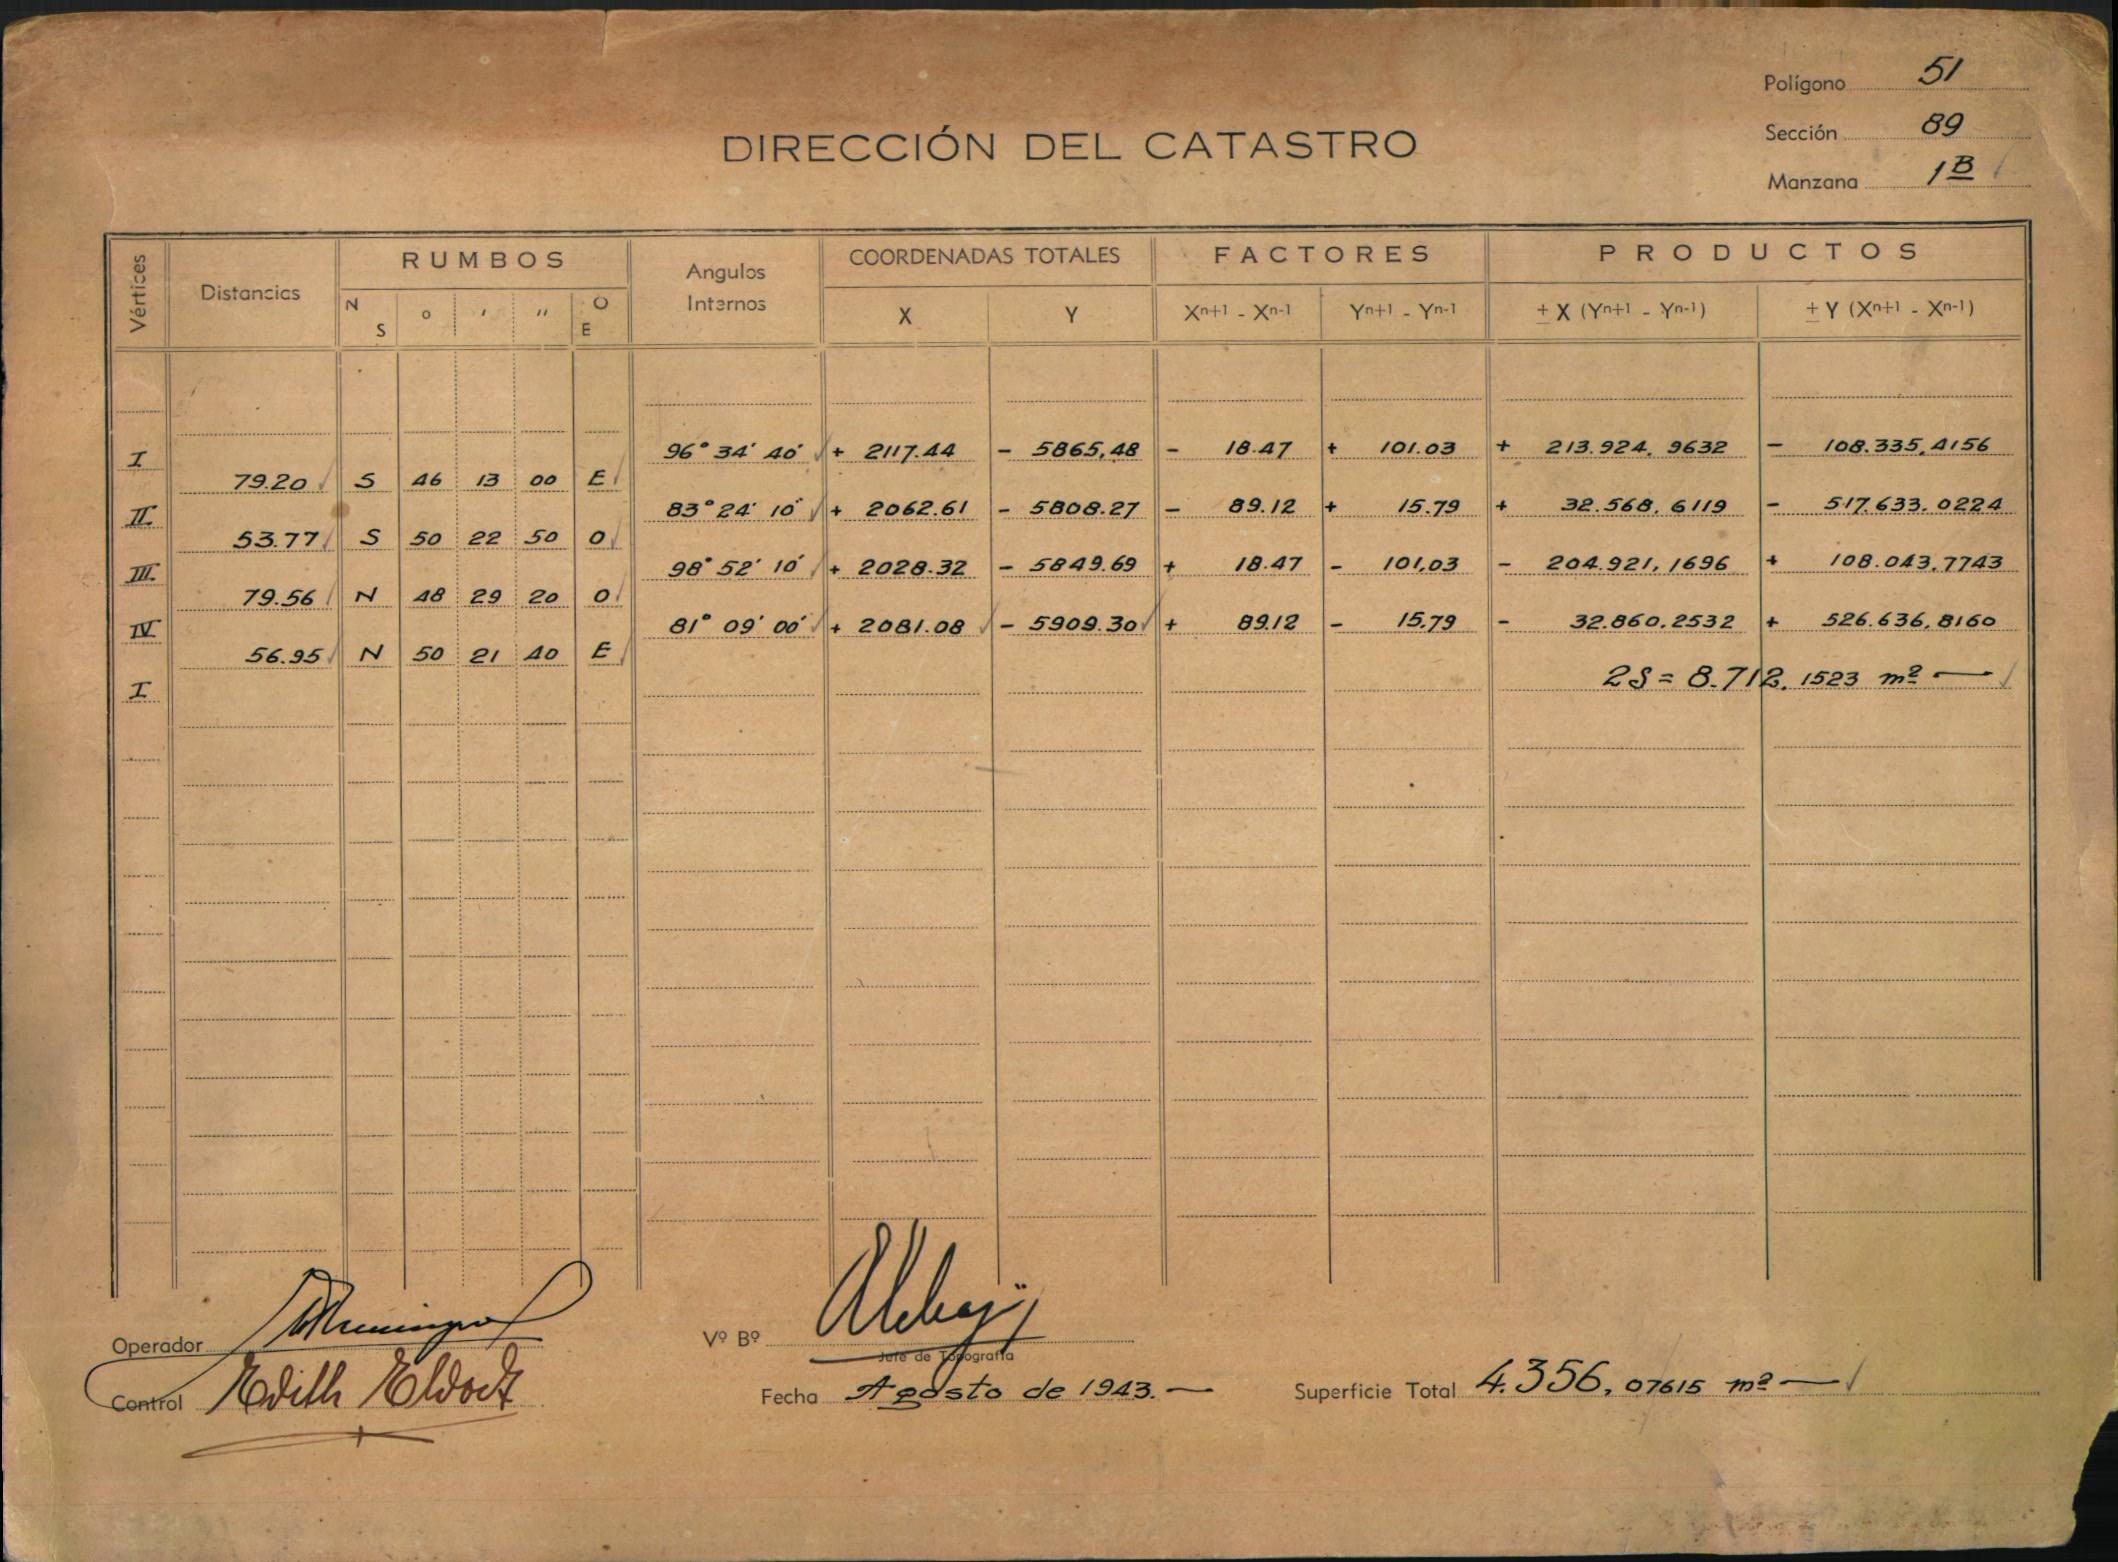 Polígono 51
Sección 89
Manzana 1B
DIRECCIÓN DEL CATASTRO
Vértices Distancias RUMBOS Angulos Internos COORDENADAS TOTALES FACTORES PRODUCTOS
N S o ' " O E X Y Xn+1 - Xn-1 Yn+1 - Yn-1 ± X (Yn+1 - Yn-1) ± Y (Xn+1 - Xn-1)
I 96° 34' 40' + 2117.44 - 5865,48 - 18.47 + 101.03 + 213.924, 9632 - 108.335,4156
79.20 S 46 13 00 E
II 83° 24' 10" + 2062.61 - 5808.27 - 89.12 + 15.79 + 32.568, 6119 - 517.633. 0224
53.77 S 50 22 50 O
III 98° 52' 10' + 2028.32 - 5849.69 + 18.47 - 101,03 - 204.921, 1696 + 108.043,7743
79.56 N 48 29 20 O
IV 81° 09' 00' + 2081.08 - 5909.30 + 89.12 - 15,79 - 32.860.2532 + 526.636,8160
56.95 N 50 21 40 E
I 2S = 8.712, 1523 m²
Operador
Vº Bº
Jefe de Topografía
Control Edith
Fecha Agosto de 1943.
Superficie Total 4.356, 07615 m²